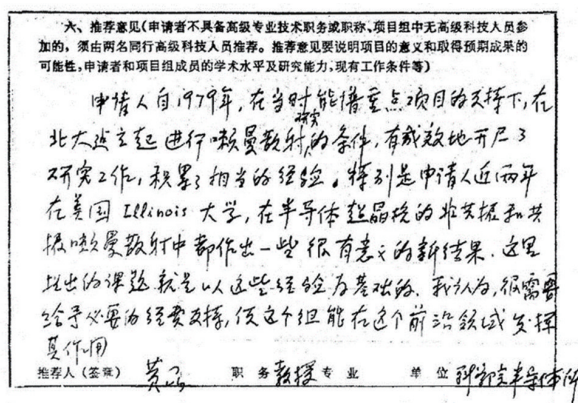 六、推荐意见(申请者不具备高级专业技术职务或职称、项目组中无高级科技人员参
加的，须由两名同行高级科技人员推荐。推荐意见要说明项目的意义和取得预期成果的
可能性，申请者和项目组成员的学术水平及研究能力，现有工作条件等)
申请人自1979年，在当时能谱重点项目的支持下，在
北大建立起进行喇曼散射研究的条件，有成效地开展了
研究工作，积累了相当的经验。特别是申请人近两年
在美国Illinois大学，在半导体超晶格的非共振和共
振喇曼散射中都作出一些很有意义的新结果。这里
提出的课题就是以这些经验为基础的。我认为，很需要
给予必要的经费支持，使这个组能在这个前沿领域发挥
其作用
推荐人(签章) 黄昆 职务 教授 专业 单位 科学院半导体所